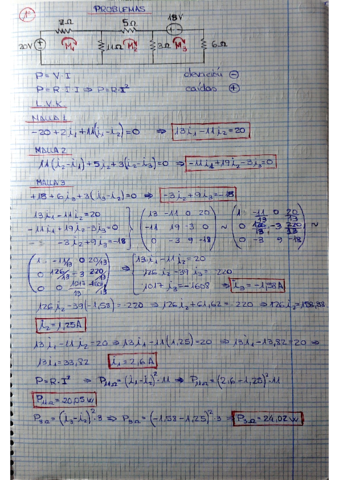 1º PROBLEMAS
2Ω 5Ω 18V
20V M₁ 11Ω M₂ 3Ω M₃ 6Ω
P=V·I elevación ⊖
P=R·I·I ⇒ P=R·I² caídas ⊕
L.V.K
MALLA 1
-20+2i₁+11(i₁-i₂)=0 ⇒ 13i₁-11i₂=20
MALLA 2
11(i₂-i₁)+5i₂+3(i₂-i₃)=0 ⇒ -11i₁+19i₂-3i₃=0
MALLA 3
+18+6i₃+3(i₃-i₂)=0 ⇒ -3i₂+9i₃=-18
13i₁-11i₂=20
-11i₁+19i₂-3i₃=0
-3i₂+9i₃=-18
13 -11 0 20
-11 19 -3 0
0 -3 9 -18
13i₁-11i₂=20
126i₂-39i₃=220
1017i₃=-1608 ⇒ i₃=-1,58A
126i₂-39(-1,58)=220 ⇒ 126i₂+61,62=220 ⇒ 126i₂=158,38
i₂=1,25A
13i₁-11i₂=20 ⇒ 13i₁-11(1,25)=20 ⇒ 13i₁-13,82=20 ⇒
13i₁=33,82 i₁=2,6A
P=R·I² ⇒ P₁₁Ω=(i₁-i₂)²·11 ⇒ P₁₁Ω=(2,6-1,25)²·11
P₁₁Ω=20,05W
P₃Ω=(i₃-i₂)²·3 ⇒ P₃Ω=(-1,58-1,25)²·3 ⇒ P₃Ω=24,02W